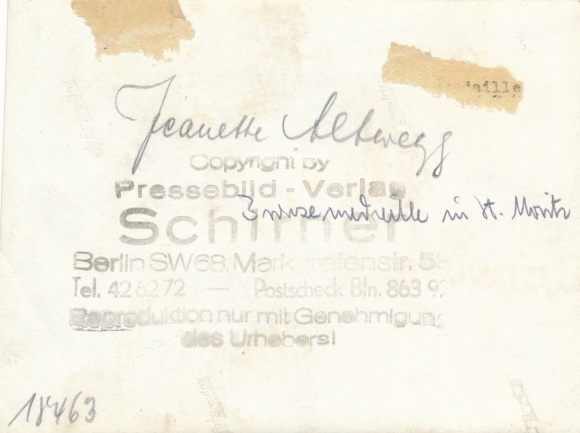 daille
Jeanette Altwegg
Copyright by
Pressebild - Verlag
Bronzemedaille in St. Moritz
Schirner
Berlin SW 68, Markgrafenstr. 58
Tel. 42 62 72 — Postscheck Bln. 863 9
Reproduktion nur mit Genehmigung
des Urhebers!
18463